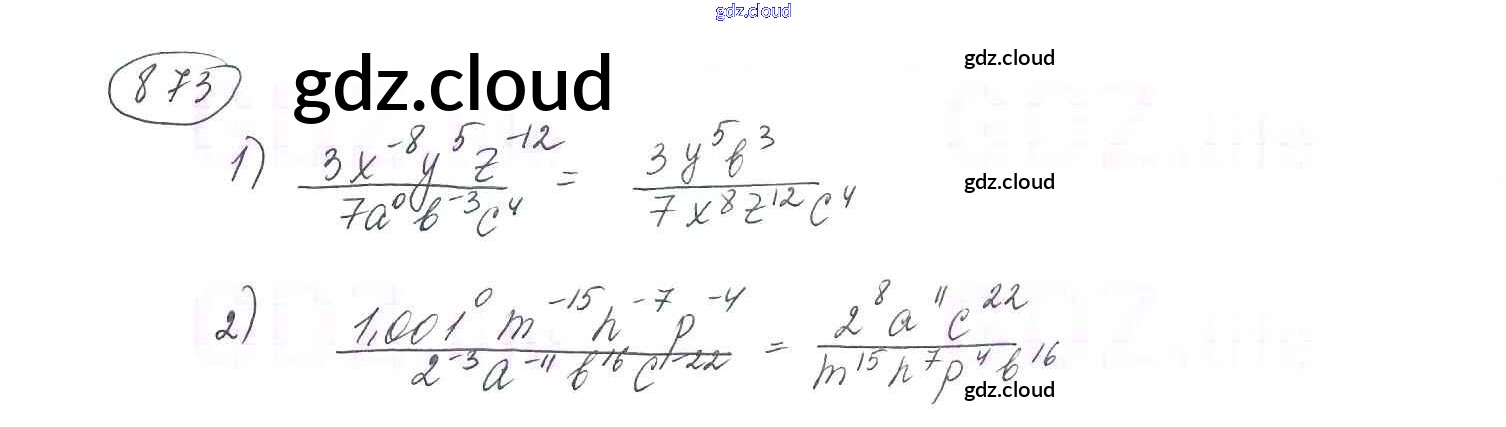 gdz.cloud
873 gdz.cloud gdz.cloud
1) 3x⁻⁸y⁵z⁻¹² / 7a⁰b⁻³c⁴ = 3y⁵b³ / 7x⁸z¹²c⁴
gdz.cloud
2) 1,001⁰m⁻¹⁵n⁻⁷p⁻⁴ / 2⁻³a⁻¹¹b¹⁶c⁻²² = 2⁸a¹¹c²² / m¹⁵n⁷p⁴b¹⁶
gdz.cloud